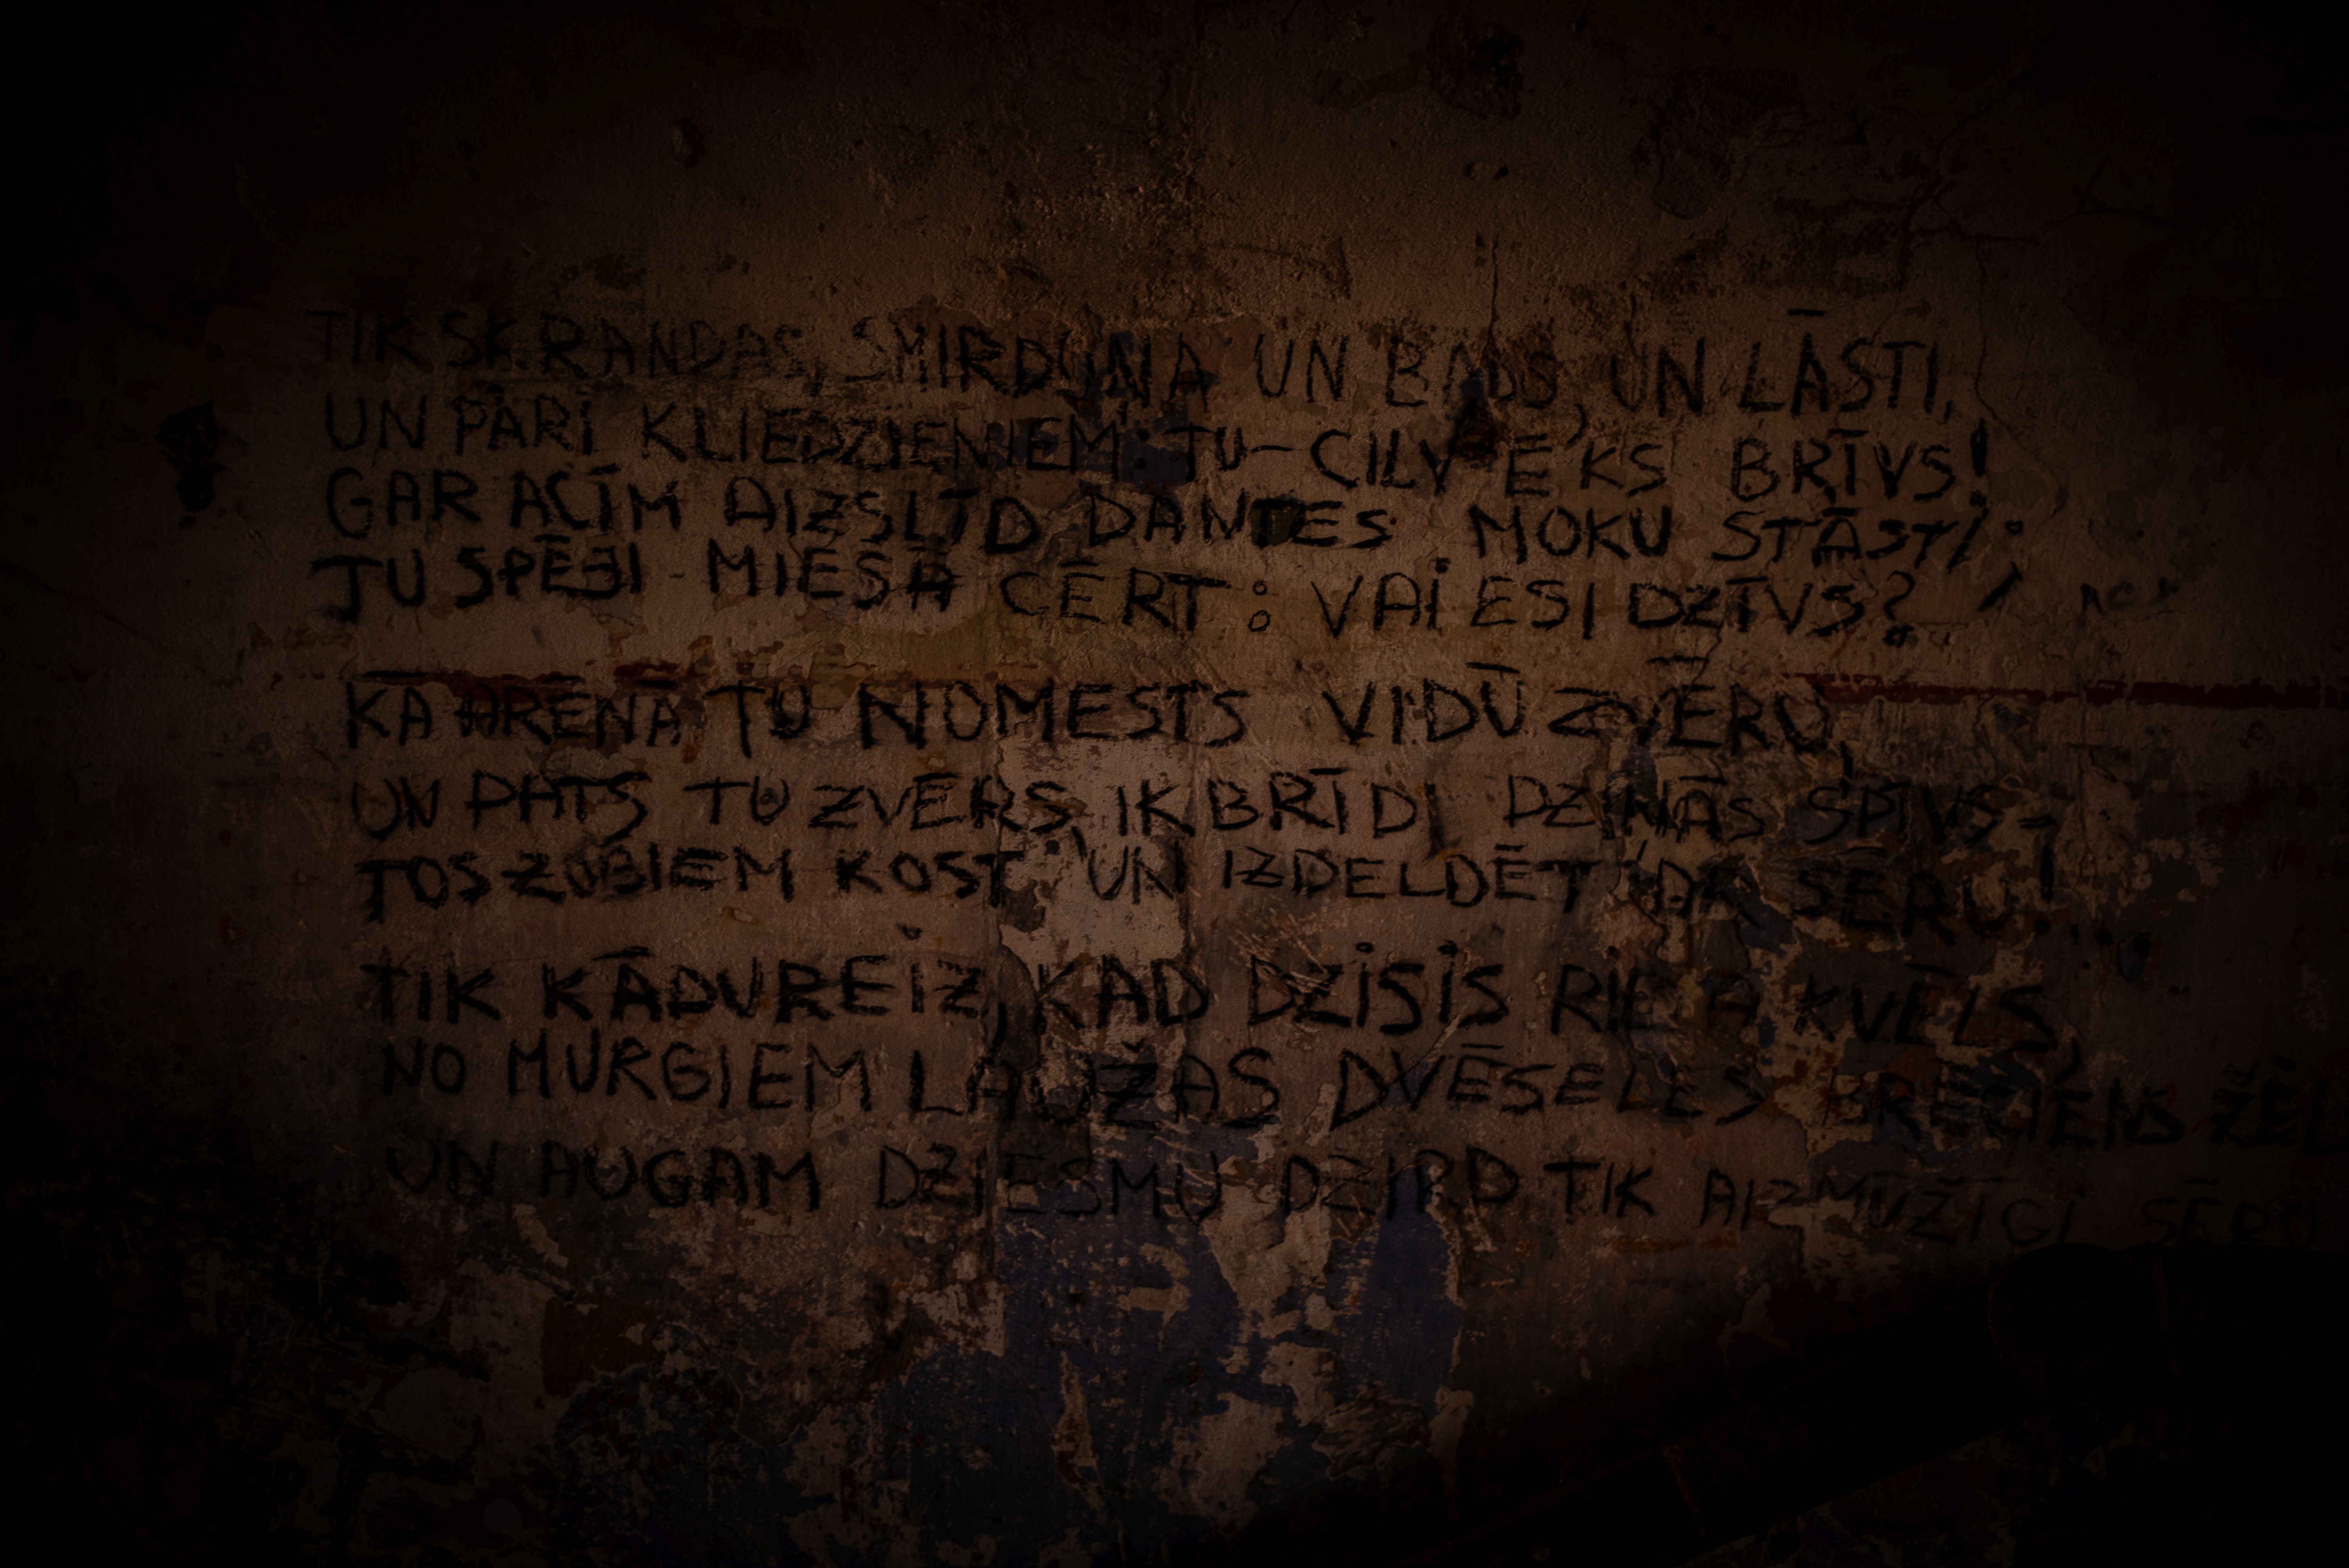 TIK SKRANDAS, SMIRDOŅA UN BADS, UN LĀSTI,
UN PĀRI KLIEDZIENIEM TU – CILVĒKS BRĪVS!
GAR ACĪM AIZSLĪD DANTES MOKU STĀSTI;
TU SPĒJI MIESĀ CĒRT: VAI ESI DZĪVS?
KĀ ARĒNĀ TU NOMESTS VIDŪ ZVĒRU,
UN PATS TU ZVĒRS, IK BRĪDI DZIŅĀS SPĪVS –
TOS ZOBIEM KOST UN IZDELDĒT AR SĒRU!
TIK KĀDUREIZ, KAD DZISIS RIETA KVĒLS,
NO MURGIEM LAUŽAS DVĒSELES BRĒCIENS ŽĒL
UN AUGAM DZIESMU DZIRD TIK AIZMŪŽĪGI SĒRU